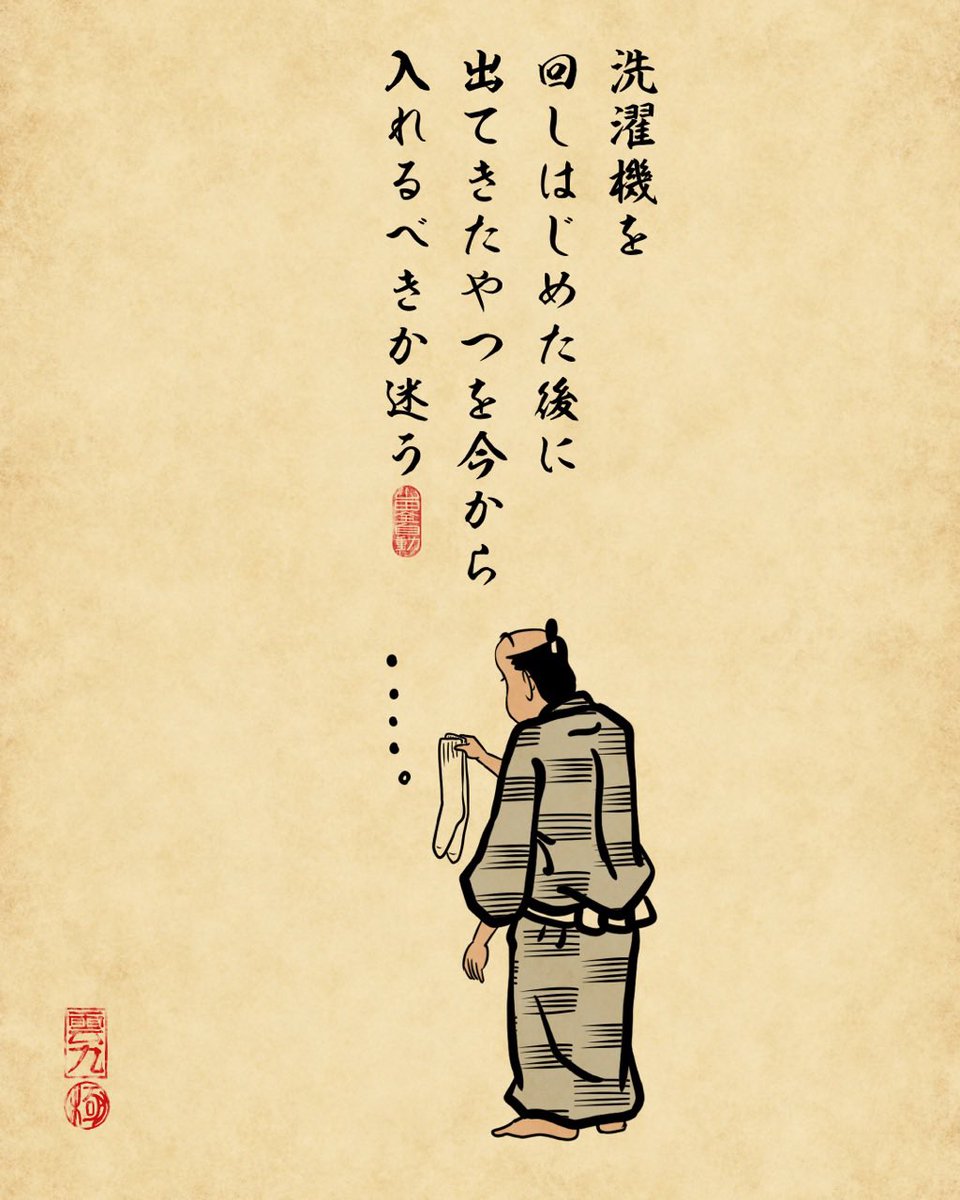 洗濯機を
回しはじめた後に
出てきたやつを今から
入れるべきか迷う
全自動
雲九
極